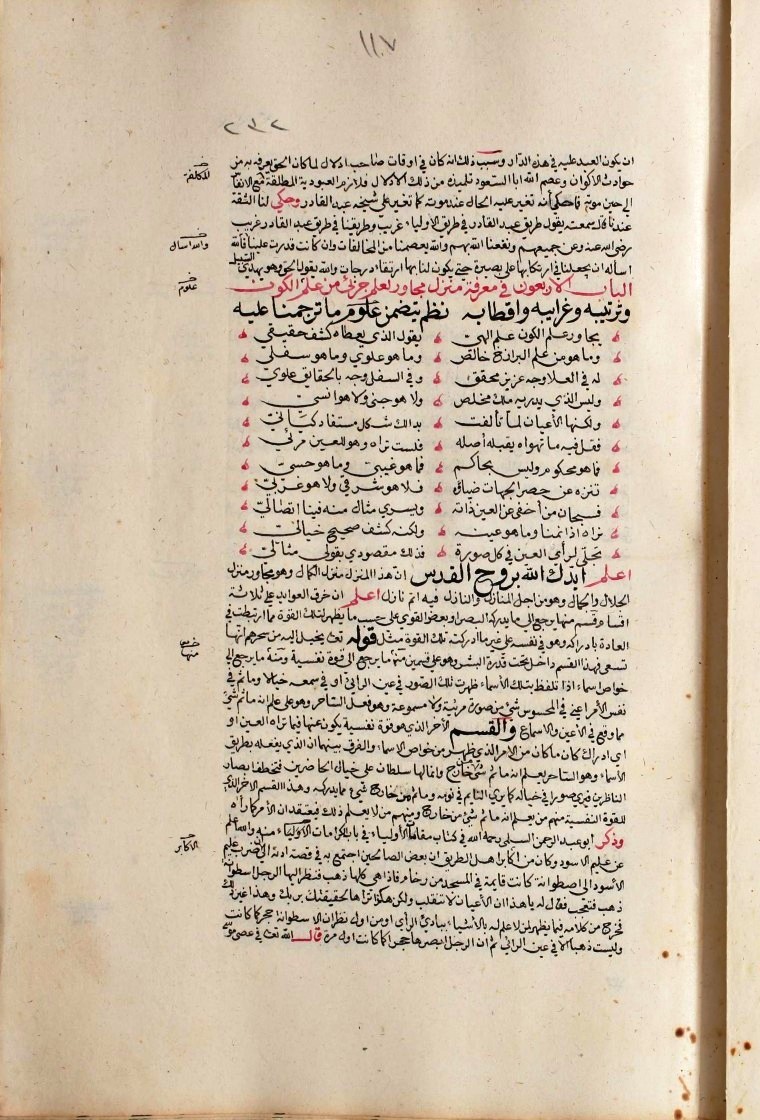 ١١٧
٢١٢
ان يكون العبد عليه في هذه الدار وسبب ذلك انه كان في اوقات صاحب ادلال لما كان الحق يعرفه به من
حوادث الاكوان وعصم الله ابا السعود تلميذه من ذلك الادلال فلازم العبودية المطلقة مع الانفاس
الى حين موته فما حكى أنه تغير عليه الحال عند موته كما تغير على شيخه عبد القادر وحكى لنا الثقة
عندنا قال سمعته يقول طريق عبد القادر في طريق الاولياء غريب وطريقنا في طريق عبد القادر غريب
رضي الله عنه وعن جميعهم ونفعنا الله بهم والله يعصمنا من المخالفات وان كانت قدرت علينا فالله
اساله ان يجعلنا في ارتكابها على بصيرة حتى يكون لنا بها ارتقاء درجات والله يقول الحق وهو يهدي السبيل
الباب الاربعون في معرفة منزل مجاور لعلم جزئي من علم الكون
وترتيبه وغرايبه واقطابه نظم يتضمن علوم ما ترجمنا عليه
يجاور علم الكون علم الهي يقول الذي يعطاه كشف حقيقي
وما هو من علم البرازخ خالص وما هو علوي وما هو سفلي
له في العلا وجه عزيز محقق وفي السفل وجه بالحقايق علوي
وليس الذي يدريه ملك مخلص ولا هو جني ولا هو انسي
ولكنها الأعيان لما تألفت بدالك شكل مستفاد كياني
فقل فيه ما تهواه يقبله أصله فلست تراه وهو للعين مرئي
فما هو محكوم وليس بحاكم فما هو غيبي وما هو حسي
تنزه عن حصر الجهات ضياؤه فلا هو شرقي ولا هو غربي
فسبحان من أخفى عن العين ذاته ويسري مثال منه فينا اتصالي
تراه اذا نمنا وما هو عينه ولكنه كشف صحيح خيالي
تجلى لرأي العين في كل صورة فذلك مقصودي بقولي مثالي
اعلم ايدك الله بروح القدس ان هذا المنزل منزل الكمال وهو مجاور منزل
الجلال والجمال وهو من اجل المنازل والنازل فيه اتم نازل اعلم ان خرق العوايد على ثلاثة
اقسام قسم منها يرجع الى ما يدركه البصر او بعض القوى على حسب ما يظهر لتلك القوة مما ارتبطت في
العادة بادراكه وهو في نفسه على غير ما أدركته تلك القوة مثل قوله تعالى يخيل اليه من سحرهم انها
تسعى فهذا القسم داخل تحت قدرة البشر وهو على قسمين منه ما يرجع الى قوة نفسية ومنه ما يرجع الى
خواص اسماء اذا تلفظ بتلك الأسماء ظهرت تلك الصور في عين الرائي او في سمعه خيالا وما ثم في
نفس الأمر أعني في المحسوس شيء من صورة مرئية ولا مسموعة وهو فعل الساحر وهو على علم انه ما ثم شيء
مما وقع في الأعين والاسماع والقسم الآخر الذي هو قوة نفسية يكون عنها فيما تراه العين او
اي ادراك كان ما كان من الامر الذي ظهر من خواص الاسماء والفرق بينهما ان الذي يفعله بطريق
الأسماء وهو الساحر يعلم انه ما ثم شيء من خارج وانما لها سلطان على خيال الحاضرين فتخطف ابصار
الناظرين فيرى صورا في خياله كما يرى النايم في نومه وما ثم من خارج شيء مما يدركه وهذا القسم الاخر الذي
للقوة النفسية منهم من يعلم انه ما ثم شيء من خارج ومنهم من لا يعلم ذلك فيعتقد ان الأمر كما رآه
وذكر ابو عبد الرحمن السلمي رحمه الله في كتاب مقامات الأولياء في باب الكرامات منه والله اعلم
عن عليم الاسود وكان من اكابر اهل الطريق ان بعض الصالحين اجتمع به في قصة ادته الى ان ضرب عليم
الأسود الى اسطوانة كانت قايمة في المسجد من رخام فاذا هي كلها ذهب فنظر اليها الرجل اسطوانة
ذهب فتعجب فقال له يا هذا ان الأعيان لا تنقلب ولكن هكذا تراها لحقيقتك بربك وهذا غير ذلك
فخرج من كلامه فيما يظهر لمن لا علم له بالأشياء ببادي الرأي او من اول نظر ان الاسطوانة حجر كما كانت
وليست ذهبا الا في عين الرائي ثم ان الرجل ابصرها حجرا كما كانت اول مرة قال الله تعالى في عصى موسى
والله اسال
علوم
الاكابر